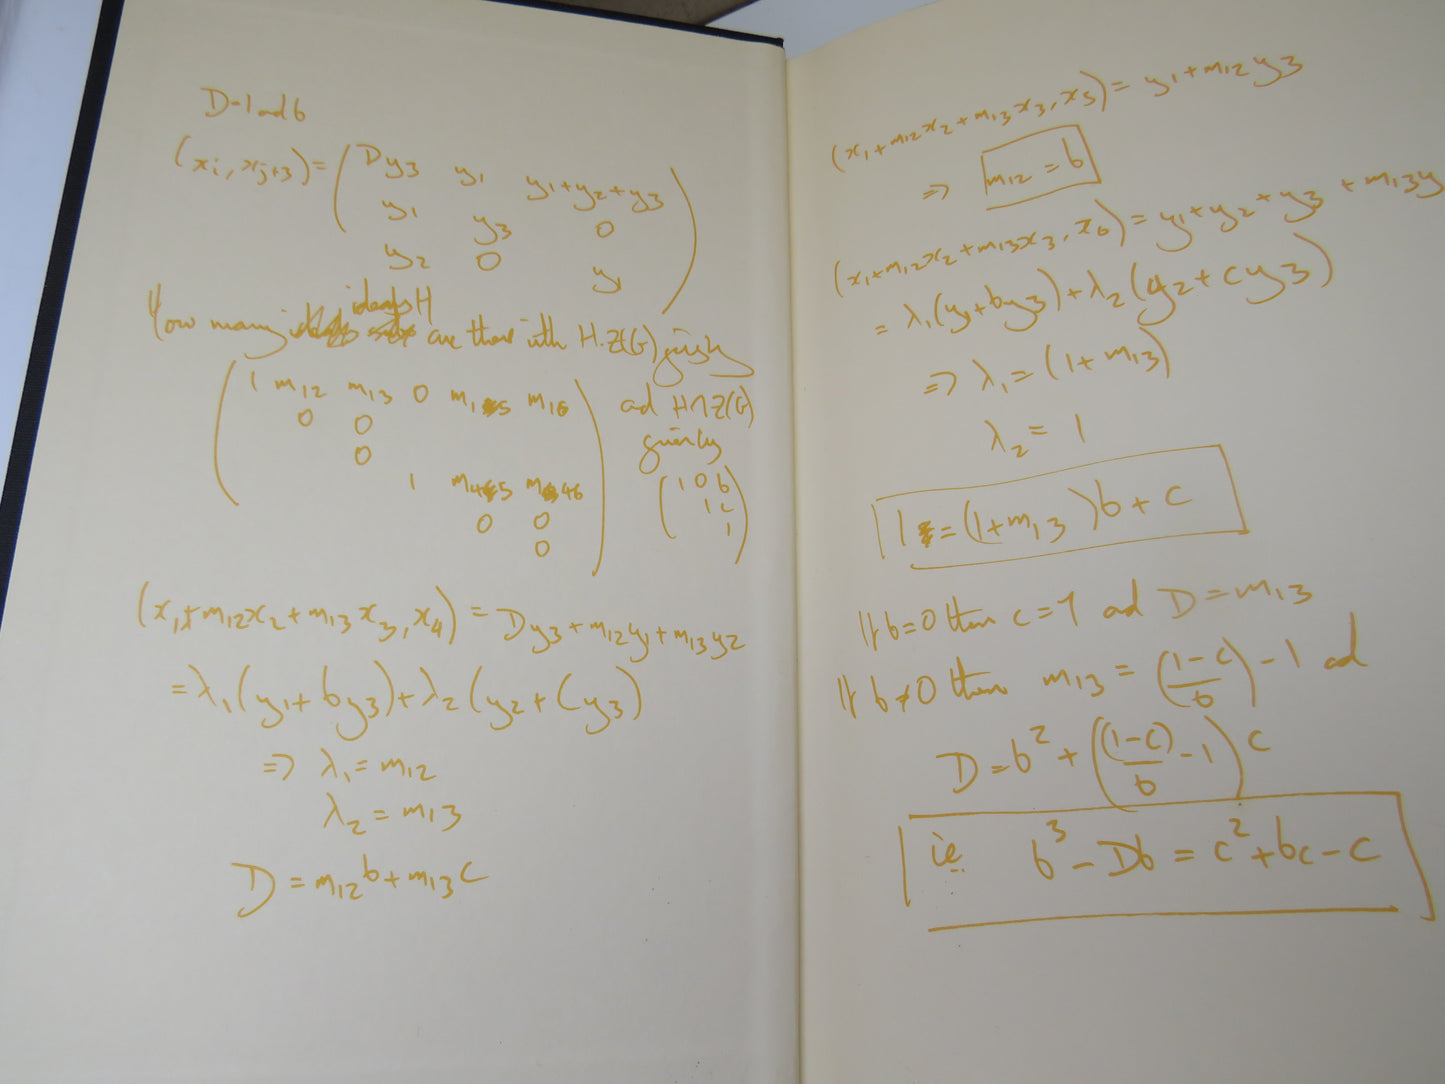 D-1 ad 6
(xi, xj+3) = ( Dy3 y1 y1+y2+y3
y1 y3 0
y2 0 y1 )
How many ideals H are there with H.Z(G) giving
( 1 m12 m13 0 m15 m16 ) ad H∩Z(G)
0 0 giving
0
1 m45 m46 ( 1 0 b
0 0 1 c
0 1 )
(x1+m12x2+m13x3, x4) = Dy3+m12y1+m13y2
= λ1(y1+by3)+λ2(y2+cy3)
=> λ1 = m12
λ2 = m13
D = m12b+m13c
(x1+m12x2+m13x3, x5) = y1+m12y3
=> m12 = b
(x1+m12x2+m13x3, x6) = y1+y2+y3+m13y
= λ1(y1+by3)+λ2(y2+cy3)
=> λ1 = (1+m13)
λ2 = 1
1 = (1+m13)b+c
If b=0 then c=1 ad D=m13
If b≠0 then m13 = ((1-c)/b)-1 ad
D = b² + ((1-c)/b -1)c
ie b³-Db = c²+bc-c